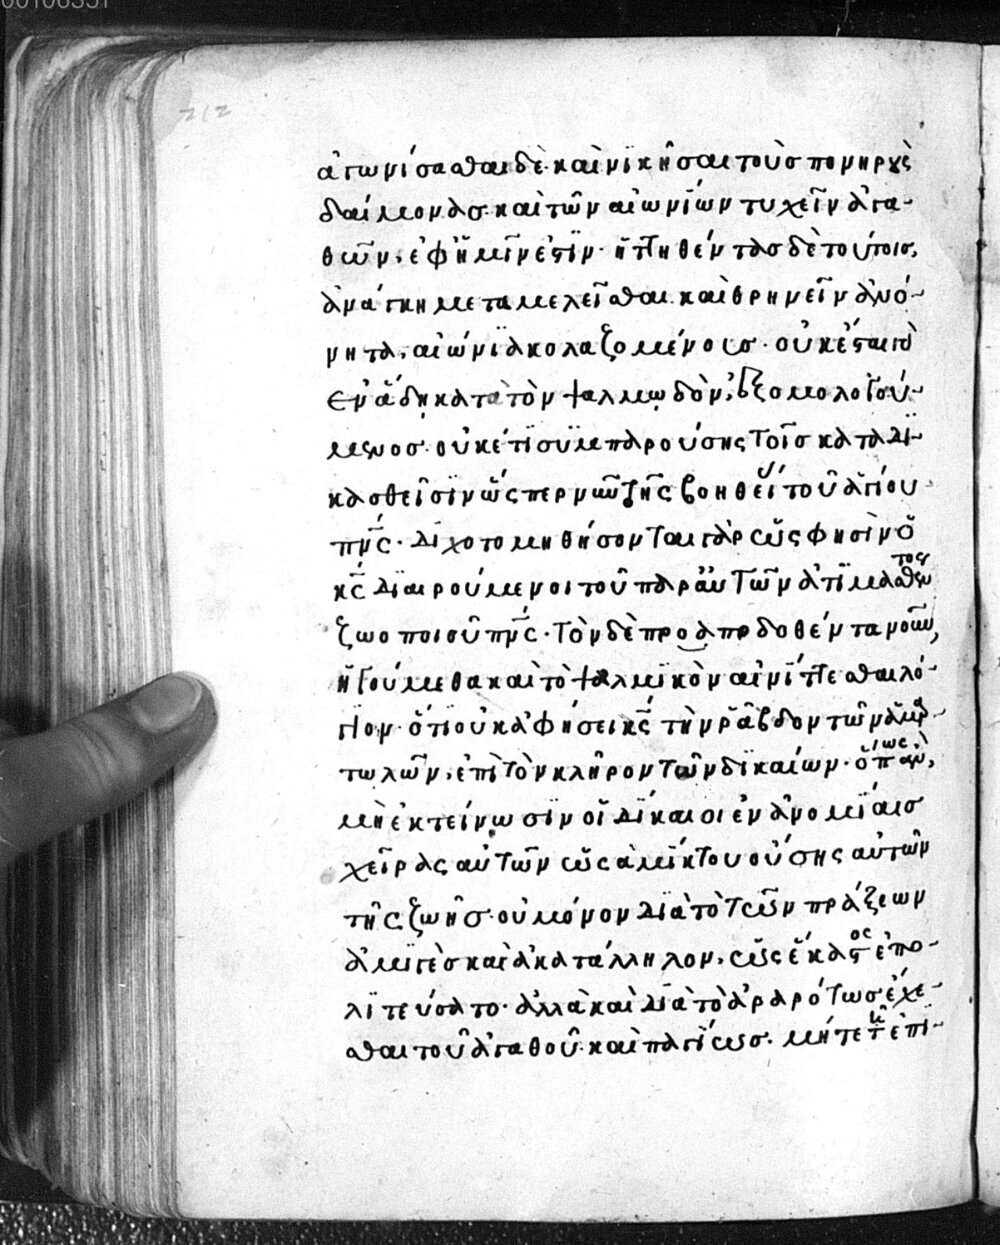 00106351
212
ἀγωνίσασθαι δὲ καὶ νϊκῆσαι τοὺσ πονηρȣ̀ς
δαίμονασ· καὶ τῶν αἰωνΐων τυχεῖν ἀγα-
θῶν, ἐφ' ἡμῖν ἐστΐν· ἡττηθέντασ δὲ τούτοισ,
ἀνάγκη μεταμελεῖσθαι καὶ θρηνεῖν ἀνό-
νητα, αἰώνϊα κολαζομένουσ· οὐκ ἔσται γὰρ
ἐν ἅδη κατὰ τὸν ψαλμῳδὸν, ἐξομολογού-
μενοσ· οὐκέτϊ συμπαρούσης τοῖσ καταδϊ-
κασθεῖσϊν ὥςπερ νῦν τῆς βοηθεί τοῦ ἁγίου
πνς· διχοτομηθήσονται γὰρ ὥς φησὶν ὁ
κς διαιρούμενοι τοῦ παρ' αὐτῶν ἀτϊμασθέντος
ζωοποιοῦ πνς· τὸν δὲ προαποδοθέντα νοῦν,
ἡγούμεθα καὶ τὸ ψαλμϊκὸν αἰνίττεσθαι λό-
γιον· ὅτι οὐκ ἀφήσει κς τὴν ῥάβδον τῶν ἁμαρ-
τωλῶν, ἐπὶ τὸν κλῆρον τῶν δϊκαίων· ὅπως ἂν,
μὴ ἐκτείνωσϊν οἱ δίκαιοι ἐν ἀνομΐαισ
χεῖρας αὐτῶν ὡς ἀμίκτου οὔσης αὐτῶν
τῆς ζωῆσ· οὐ μόνον διὰ τὸ τῶν πράξεων
ἀμϊγὲσ καὶ ἀκατάλληλον, ὡς ἕκαστος ἐπο-
λϊτεύσατο· ἀλλὰ καὶ διὰ τὸ ἀραρότωσ ἔχε-
σθαι τοῦ ἀγαθοῦ καὶ παγίωσ· μήτε τῆ ἐπϊ-